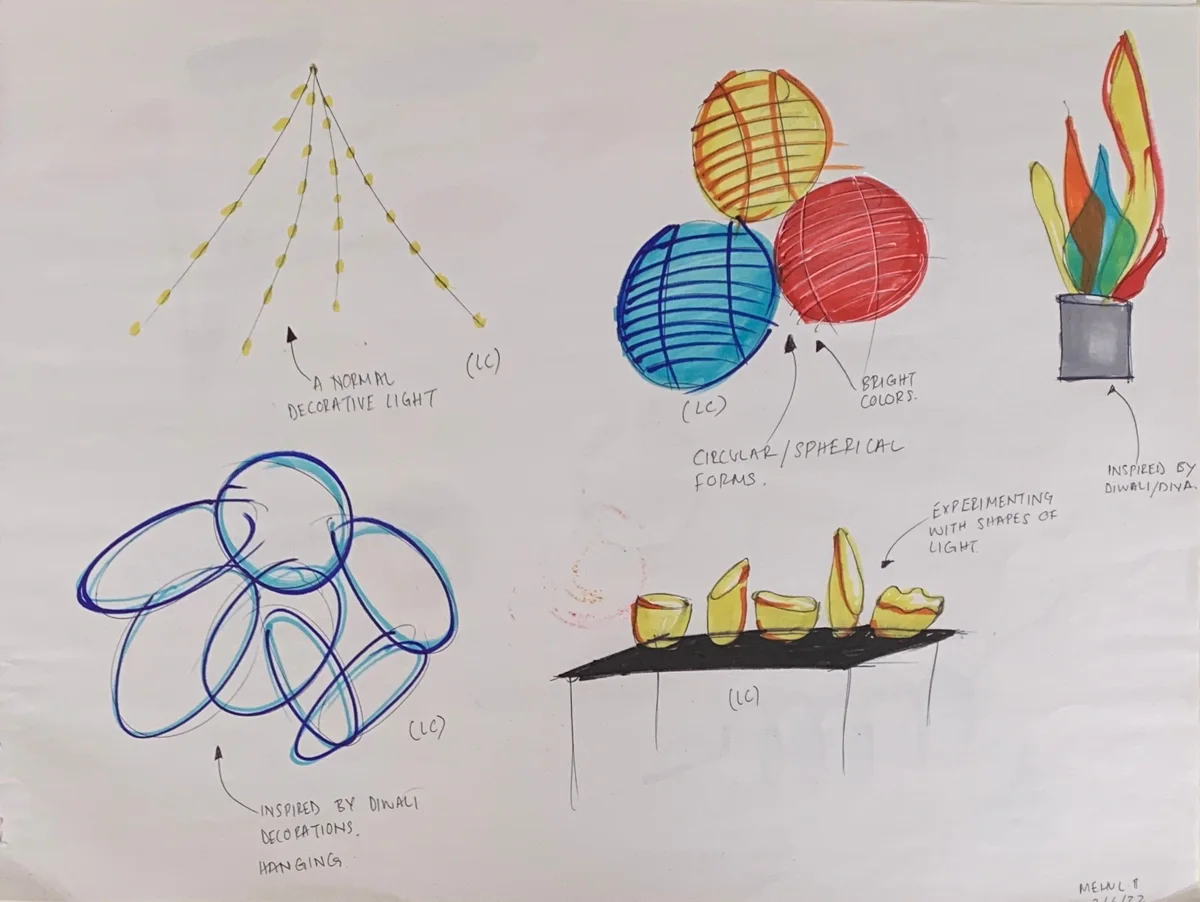 A NORMAL
DECORATIVE LIGHT
(LC)
(LC)
BRIGHT
COLORS.
CIRCULAR/SPHERICAL
FORMS.
INSPIRED BY
DIWALI/DIYA.
(LC)
INSPIRED BY DIWALI
DECORATIONS.
HANGING
EXPERIMENTING
WITH SHAPES OF
LIGHT.
(LC)